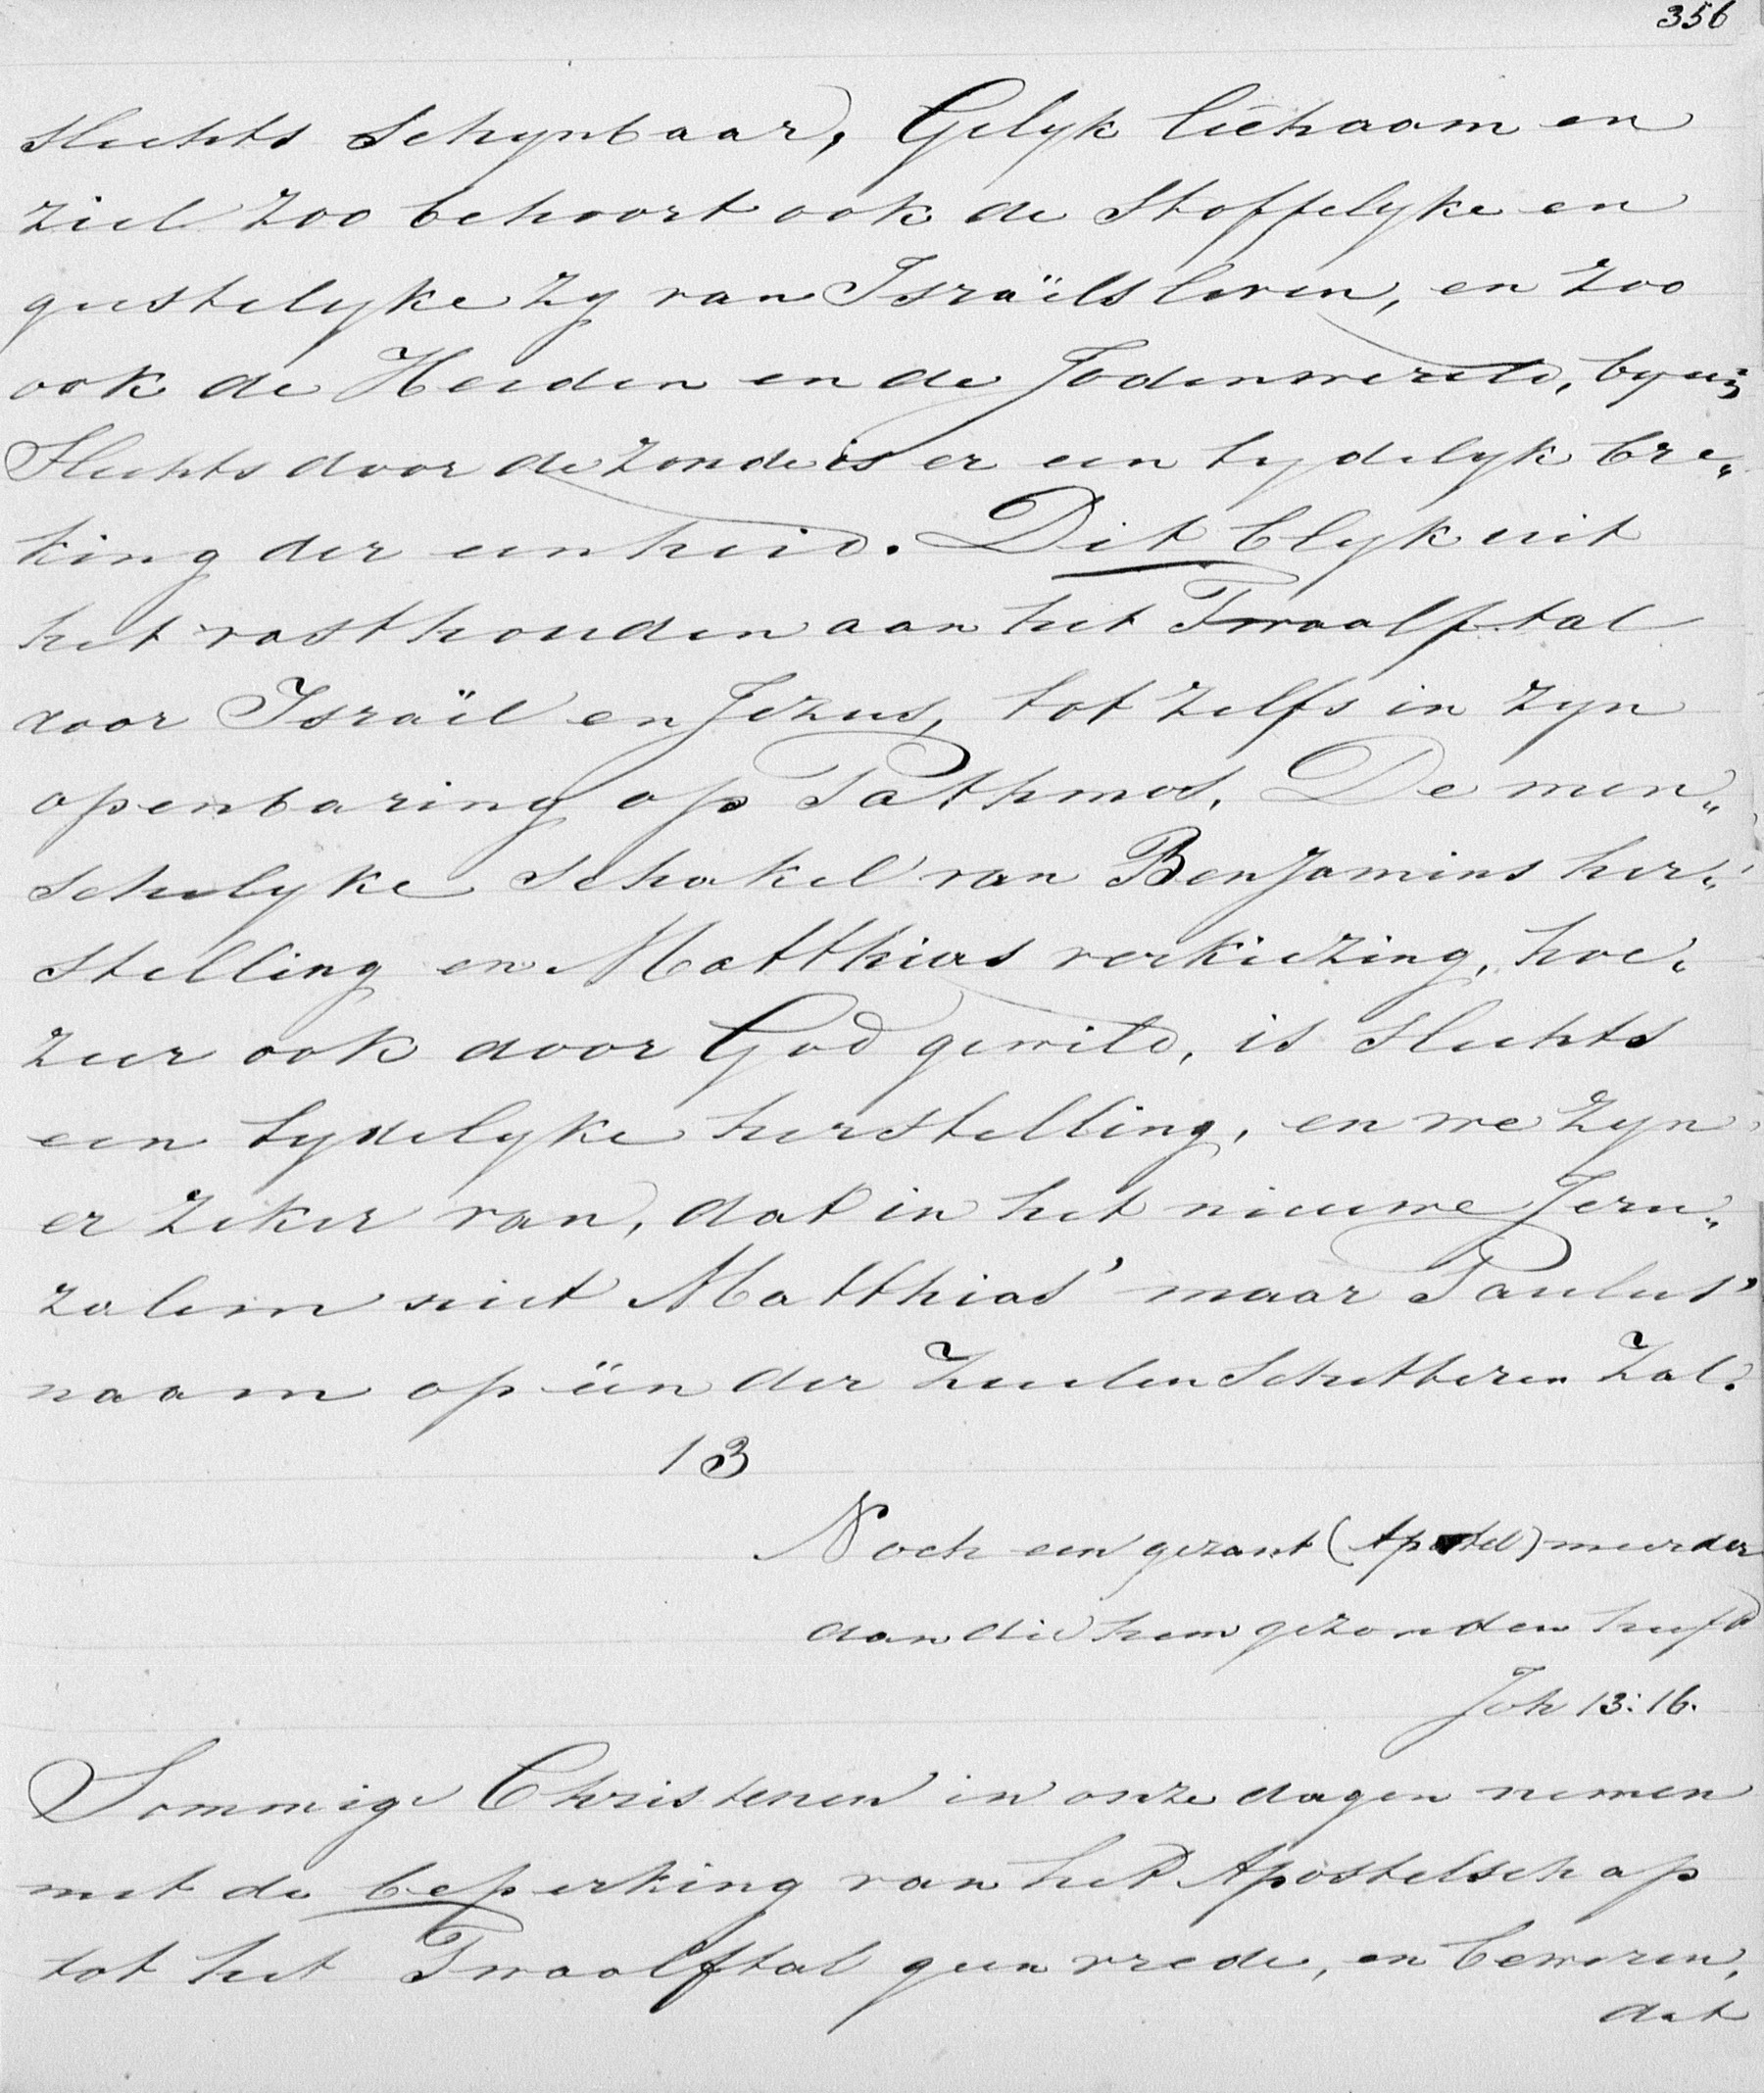 356
slechts schynbaar, Gelyk lichaam en
ziel zoo behoort ook de stoffelyke en
geestelyke zy van Israëls leven, en zoo
ook de Heiden en de Jodenwereld, byeen
Slechts door de zonde is er een tydelyk bre„
king der eenheid. Dit blyk uit
het vasthouden aan het Twaalftal
voor Israël en Jezus, tot zelfs in zyn
openbaring op Pathmos. De men„
schelyke schakel van Benjamins her„
stelling en Matthias verkiezing, hoe„
zeer ook door God gewild, is slechts
een tydelyke herstelling, en we zyn
er zeker van, dat in het nieuwe Jeru„
zalem niet Matthias' maar Paulus'
naam op één der Zuilen schitteren zal.
13
Noch een gezant (Apostel) meerder
dan die hem gezonden heefd
Joh 13:16.
Sommige Christenen in onze dagen nemen
met de beperking van het Apostelschap
tot het Twaalftal geen vrede, en beweren,
dat